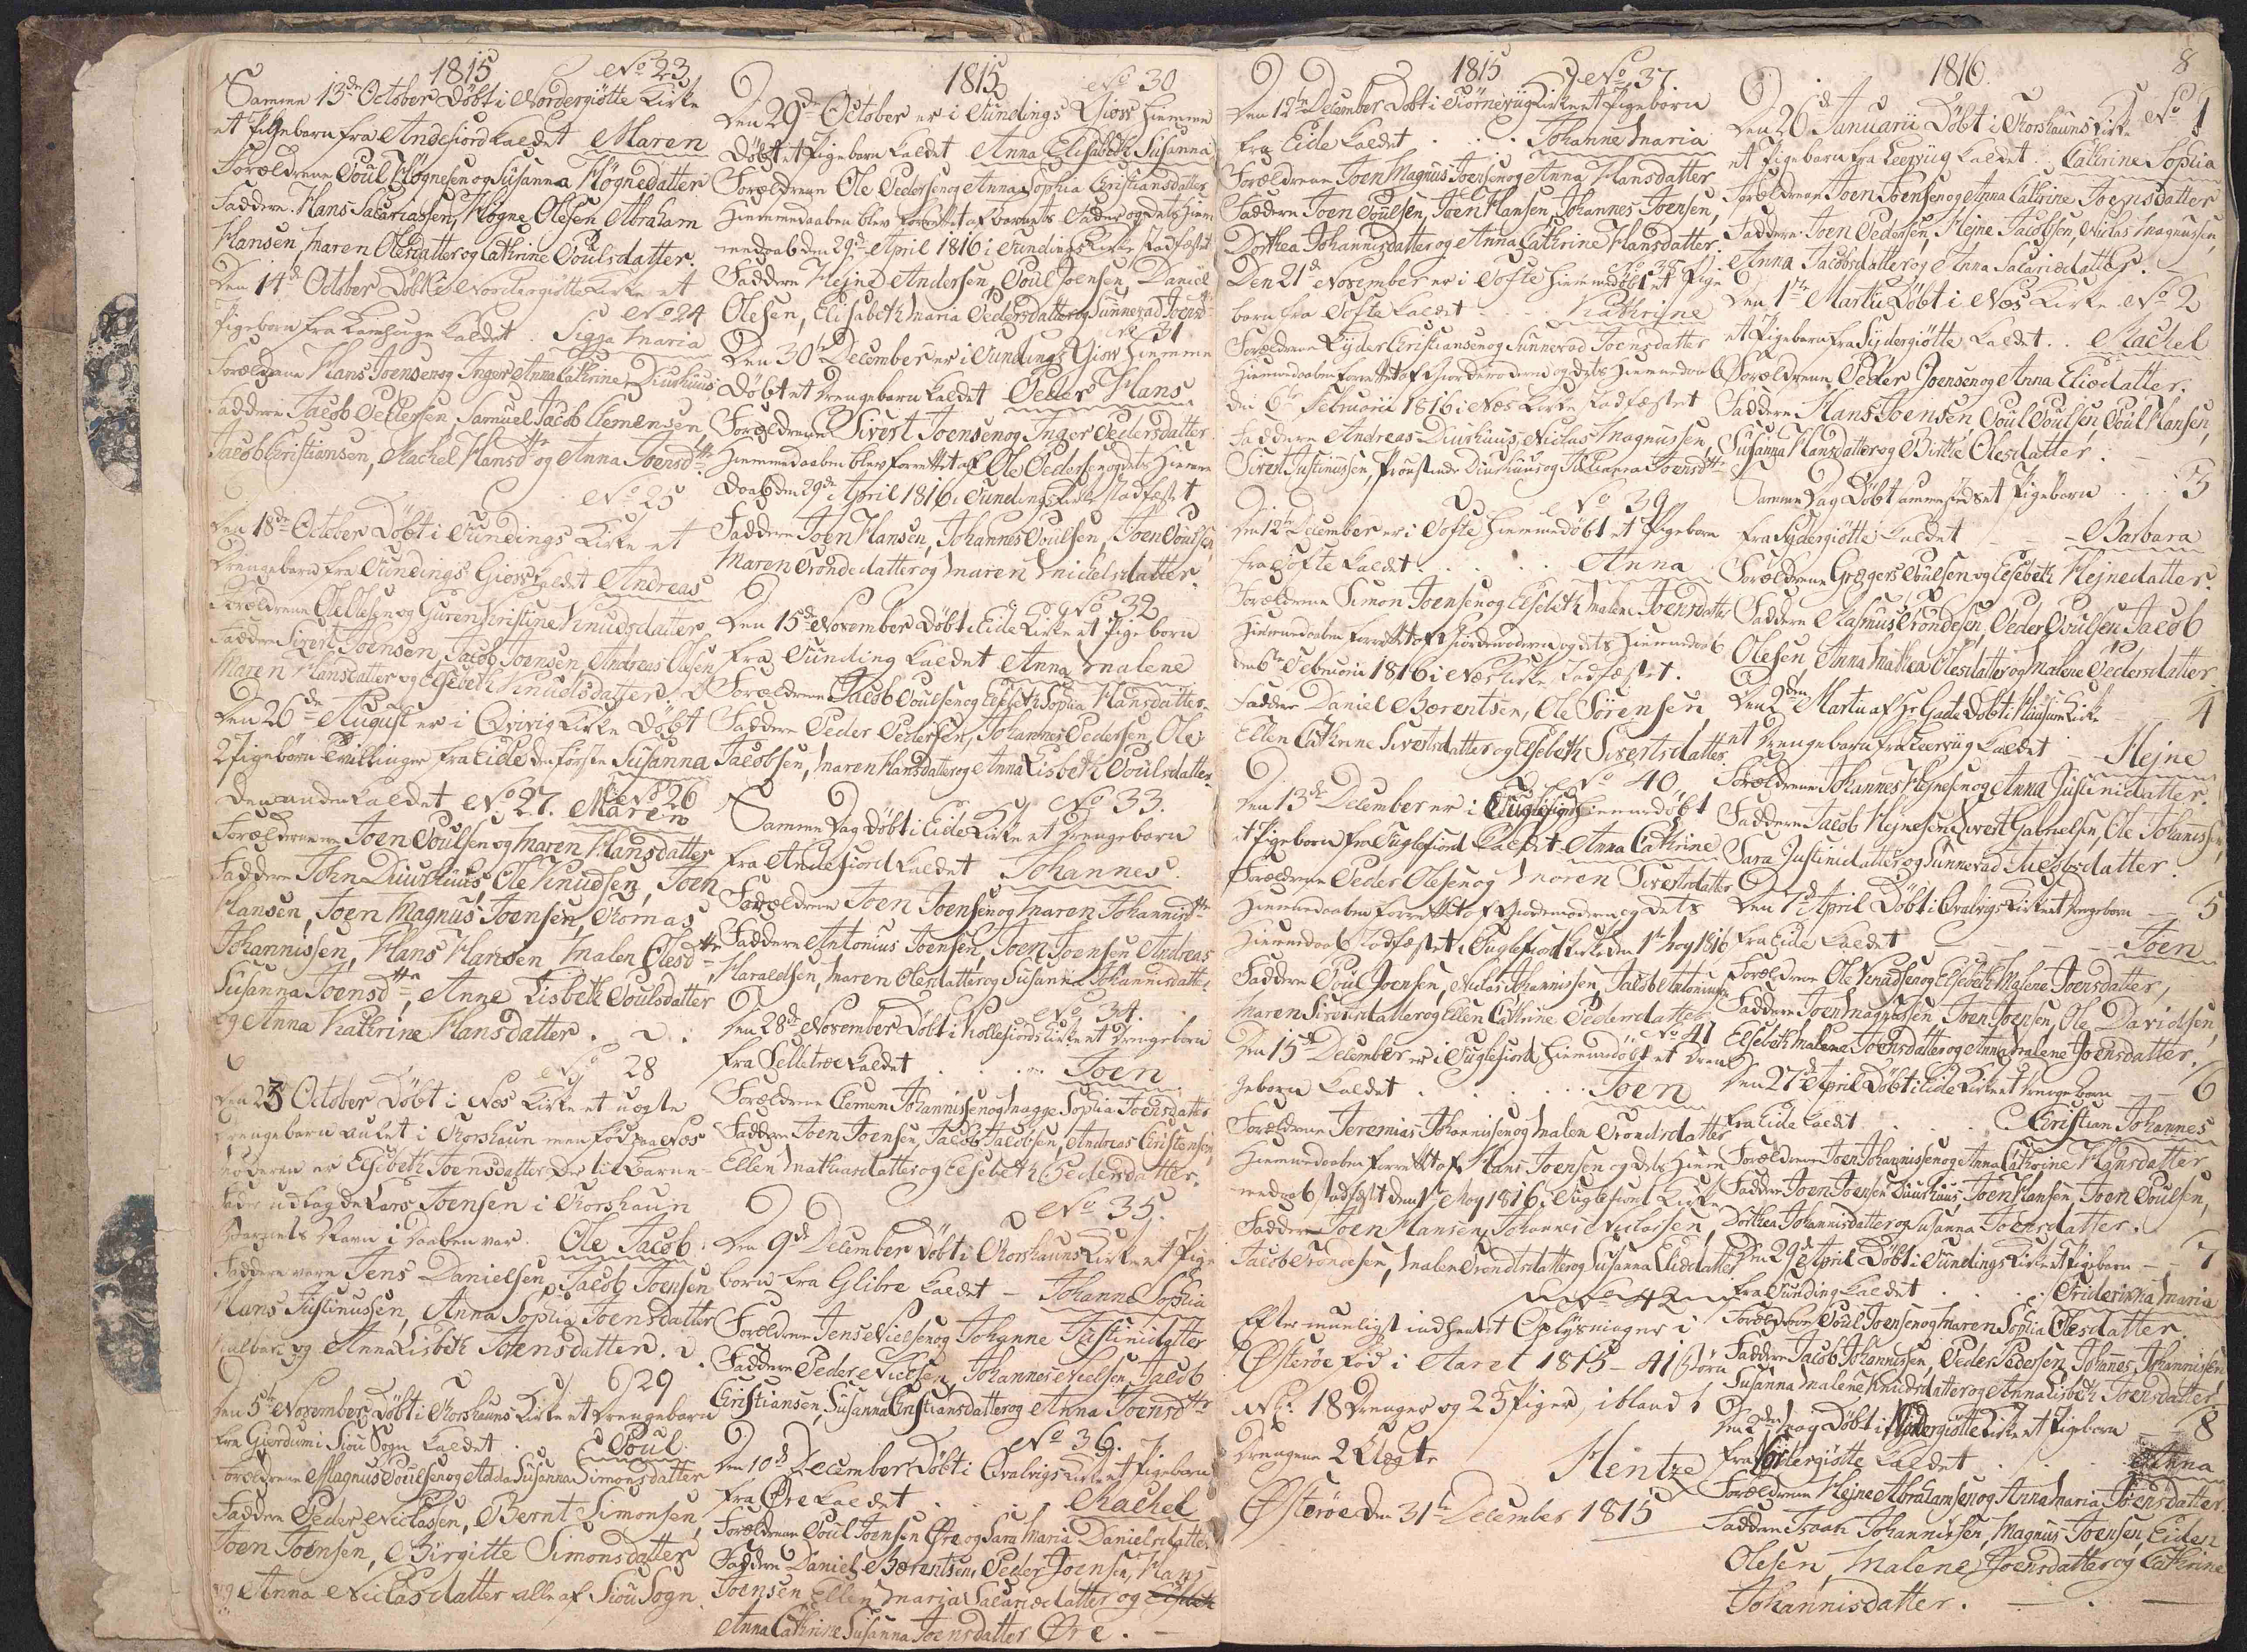 1815
No 23
Samme 13de October Døbt i Nordergiøtte Kirke
et Pigebarn fra Andefiord kaldet Maren
Forældrene Poul Høgnesen og Susanna Høgnedatter
Faddere Hans Sacariassen, Høgne Olesen Abraham
Hansen, Maren Olesdatter og Cathrine Poulsdatter.
Den 14de October Døbt i Nordergiøtte Kirke et
No 24
Pigebarn fra kaldet Sigga Maria
Forældrene Hans Joensen og Inger Anna Cathrine Diurhuus
Faddere Jacob Pedersen Samuel Jacob Clemensen
Jacob Christiansen, Rachel Hansdtr og Anna Joensdtr
No 25
Den 18de October Døbt i Fundings Kirke et
Drengebarn fra Fundings Giov kaldet Andreas
Forældrene Ole Olesen og Guren Kristine Knudsdatter
Faddere Sivert Joensen, Jacob Joensen Andreas Olesen
Maren Hansdatter og Elsebeth Knudsdatter
Den 26de August er i Qvivig Kirke Døbt
2 Pigebørn Tvillinger fra Eide den første Susanna
No 26
den anden kaldet No 27. Maren
Forældrene Joen Poulsen og Maren Hansdatter
Faddere John Diurhuus Ole Knudsen, Joen
Hansen, Joen Magnus Joensen, Tomas
Johannissen, Hans Hansen Malen Olesdtr
Susanna Joensdtr, Anne Lisbeth Poulsdatter
og Anna Kathrine Hansdatter.
No 28
Den 23 October Døbt i Nes Kirke et uægte
Drengebarn avlet i Thorshavn men fød paa Nes
Moderen er Elsebeth Joensdatter Der til Barne-
fader udlagde Lars Joensen i Thorshavn
Barnets Navn i Daaben var Ole Jacob
Faddere vare Jens Danielsen, Jacob Joensen
Hans Justinussen, Anna Sophia Joensdatter
og Anna Lisbeth Joensdatter.
29
Den 5te November Døbt i Thorshauns Kirke et Drengebarn
fra Gierdum i Siou Sogn kaldet Poul
Forældrene Magnus Poulsen og Adda Susanna Simonsdatter
Faddere Peder Niclassen, Bernt Simonsen,
Joen Joensen, Birgitte Simonsdatter
og Anna Niclasdatter alle af Siou Sogn.
1815
No 30
Den 29de October er i Fundings Giov Hiemme
Døbt et Pigebarn kaldet Anna Elisabeth Susanna
Forældrene Ole Pedersen og Anna Sophia Christiansdatter
Hiemmedaaben blev forrettet af Barnets Fader og dets Hiem
medaab den 29de April 1816 i Fundings Kirke Stadfæstet
Faddere Hejne Andersen, Poul Joensen, Daniel
Olesen, Elisabeth Maria Pedersdatter og Sunnevad Joensd
No 31
Den 30te December er i Fundings Giov Hiemme
Døbt et Drengebarn kaldet Peder Hans
Forældrene Sivert Joensen og Inger Pedersdatter
Hiemmedaaben blev forrettet af Ole Pedersen og dets Hiemme
Daab den 29de April 1816 i Fundings Kirke Stadfæstet
Faddere Joen Hansen, Johannes Poulsen, Joen Poulsen
Maren Trondedatter og Maren Mickelsdatter.
No 32
Den 15de November Døbt i Eide Kirke et Pigebarn
fra Funding kaldet Anna Malene
Forældrene Jacob Poulsen og Elsebeth Sophia Hansdatter
Faddere Peder Pedersen, Johannes Pedersen, Ole
Jacobsen, Maren Hansdatter og Anna Lisbeth Poulsdatter.
No 33.
Samme Dag Døbt i Eide Kirke et Drengebarn
fra Andefiord kaldet Johannes.
Forældrene Joen Joensen og Maren Johannisdtr
Faddere Antonius Joensen, Joen Joensen Andreas
Haraldsen, Maren Olesdatter og Susanna Johannisdatter
No 34.
Den 28de November Døbt i Kollefiords Kirke et Drengebarn
fra Selletræ kaldet Joen
Forældrene Clemen Johannissen og Magge Sophia Joensdatter
Faddere Joen Joensen, Jacob Jacobsen, Andreas Christensen
Ellen Mathiasdatter og Elsebeth Pedersdatter.
No 35.
Den 9de December Døbt i Thorshauns Kirke et Pige
barn fra Glibre kaldet - Johanne Sophia
Forældrene Jens Nielsen og Johanne Justinidatter
Faddere Peder Nielsen, Johannes Nielsen, Jacob
Christiansen, Susanna Christiansdatter og Anna Joensdtr
No 36.
Den 10de December Døbt i Qvalvigs Kirke et Pigebarn
fra Øre kaldet Rachel
Forældrene Poul Joensen Øre og Sara Maria Danielsdatter
Faddere Daniel Bærentsen, Peder Joensen, Hans
Joensen Ellen Maria Sacariædatter og
Anna Cathrine Susanna Joensdatter Øre.
1815
No 37.
Den 12te December Døbt i Kirke et Pigebarn
fra Eide kaldet Johanne Maria
Forældrene Joen Magnus Joensen og Anna Hansdatter
Faddere Joen Poulsen, Joen Hansen, Johannes Joensen,
Dorthea Johannisdatter og Anna Cathrine Hansdatter.
No 38
Den 21de November er i Tofte Hiemmedøbt et Pige
barn fra Tofte kaldet Kathrine
Forældrene Eyder Christiansen og Sunnevad Joensdatter
Hiemmedaaben forrettet af Giordemoderen og dets Hiemmedaab
den 6te Februarii 1816 i Næs Kirke stadfæstet
Faddere Andreas Diurhuus, Niclas Magnussen,
Sivert Justinussen, Diurhuus og Joensdtr
No 39
Den 12te December er i Tofte Hiemmedøbt et Pigebarn
fra Tofte kaldet Anna
Forældrene Simon Joensen og Elsebeth Malene Joensdatter
Hiemmedaaben forrettet af Giordemoderen og dets Hiemmedaab
den 6te Februarii 1816 i Næs Kirke stadfæstet.
Faddere Daniel Bærentsen, Ole Sørensen,
Ellen Cathrine Sivertsdatter og Elsebeth Sivertsdatter.
No 40.
Den 13de December er i Fuglefiord Hiemmedøbt
et Pigebarn fra Fuglefiord kaldet Anna Cathrine
Forældrene Peder Olesen og Maren Sivertsdatter
Hiemmedaaben forrettet af Giordemoderen og dets
Hiemmedaab stadfæstet i Fuglefiord Kirke den 1te May 1816
Faddere Poul Joensen, Niclas Johannissen, Jacob Antoniussen
Maren Sivertsdatter og Ellen Cathrine Pedersdatter
No 41
Den 15de December er i Fuglefiord Hiemmedøbt et Dren
gebarn kaldet Joen
Forældrene Jeremias Johannissen og Malen Trondsdatter
Hiemmedaaben forrettet af Hans Joensen og dets Hiem
medaab stadfæstet den 1te May 1816 i Fuglefiord Kirke
Faddere Joen Hansen, Johannes Niclassen,
Jacob Trondesen, Malen Trondsdatter og Susanna Eliædatter
No 42
Efter mueligst indhentet Oplysninger i
Østerøe fød i Aaret 1815 - 41 Børn
Nl. 18 Drenger og 23 Piger, iblandt
Drengene 2 Uægte
Hentze
Østerøe den 31te December 1815
8
1816.
No 1
Den 26de Januarii Døbt i Thorshauns Kirke
et Pigebarn fra kaldet Cathrine Sophia
Forældrene Joen Joensen og Anna Cathrine Joensdatter
Faddere Joen Pedersen, Hejne Jacobsen, Niclas Magnussen,
Anna Jacobsdatter og Anna Sacariædatter.
Den 1te Martii Døbt i Næs Kirke No 2
et Pigebarn fra Sydergiøtte kaldet Rachel
Forældrene Peder Joensen og Anna Eliædatter.
Faddere Hans Joensen Poul Poulsen, Poul Hansen,
Susanna Hansdatter og Birthe Olesdatter.
Samme Dag Døbt ammesteds et Pigebarn 3
fra Sydergiøtte kaldet Barbara
Forældrene Grægers Poulsen og Elsebeth Hejnedatter.
Faddere Rasmus Trondesen, Peder Poulsen Jacob
Olesen, Anna Mathea Olesdatter og Malene Pedersdatter
Den 2den Martii af Hr Døbt i Kirke 4
et Drengebarn fra kaldet Hejne
Forældrene Johannes Hejnesen og Anna Justinidatter.
Faddere Jacob Hejnesen, Sivert Gabrielsen, Ole Johannissen,
Sara Justinidatter og Sunnevad Jacobsdatter.
Den 7de April Døbt i Qvalvigs Kirke et Drengebarn 5
fra Eide kaldet Joen
Forældrene Ole Knudsen og Elsebeth Malene Joensdatter,
Faddere Joen Magnussen, Joen Joensen, Ole Davidsen,
Elsebeth Malene Joensdatter og Anna Malene Joensdatter.
Den 27de April Døbt i Eide Kirke et Drengebarn 6
fra Eide kaldet Christian Johannes
Forældrene Joen Johannissen og Anna Cathrine Hansdatter
Faddere Joen Joensen Diurhuus, Joen Hansen, Joen Poulsen,
Dorthea Johannisdatter og Susanna Joensdatter.
Den 29de April Døbt i Fundings Kirke et Pigebarn 7
fra Funding kaldet Friderikka Maria
Forældrene Poul Joensen og Maren Sophia Olesdatter.
Faddere Jacob Johannissen, Peder Pedersen, Johannes Johannissen
Susanna Malene Knudsdatter og Anna Lisbeth Joensdatter.
Den 2den May Døbt i Nordergiøtte Kirke et Pigebarn 8
fra Nordergiøtte kaldet Anna
Forældrene Hejne Abrahamsen og Anna Maria Joensdatter.
Faddere Isaak Johannissen, Magnus Joensen, Eiden
Olesen, Malene Joensdatter og Cathrine
Johannisdatter.